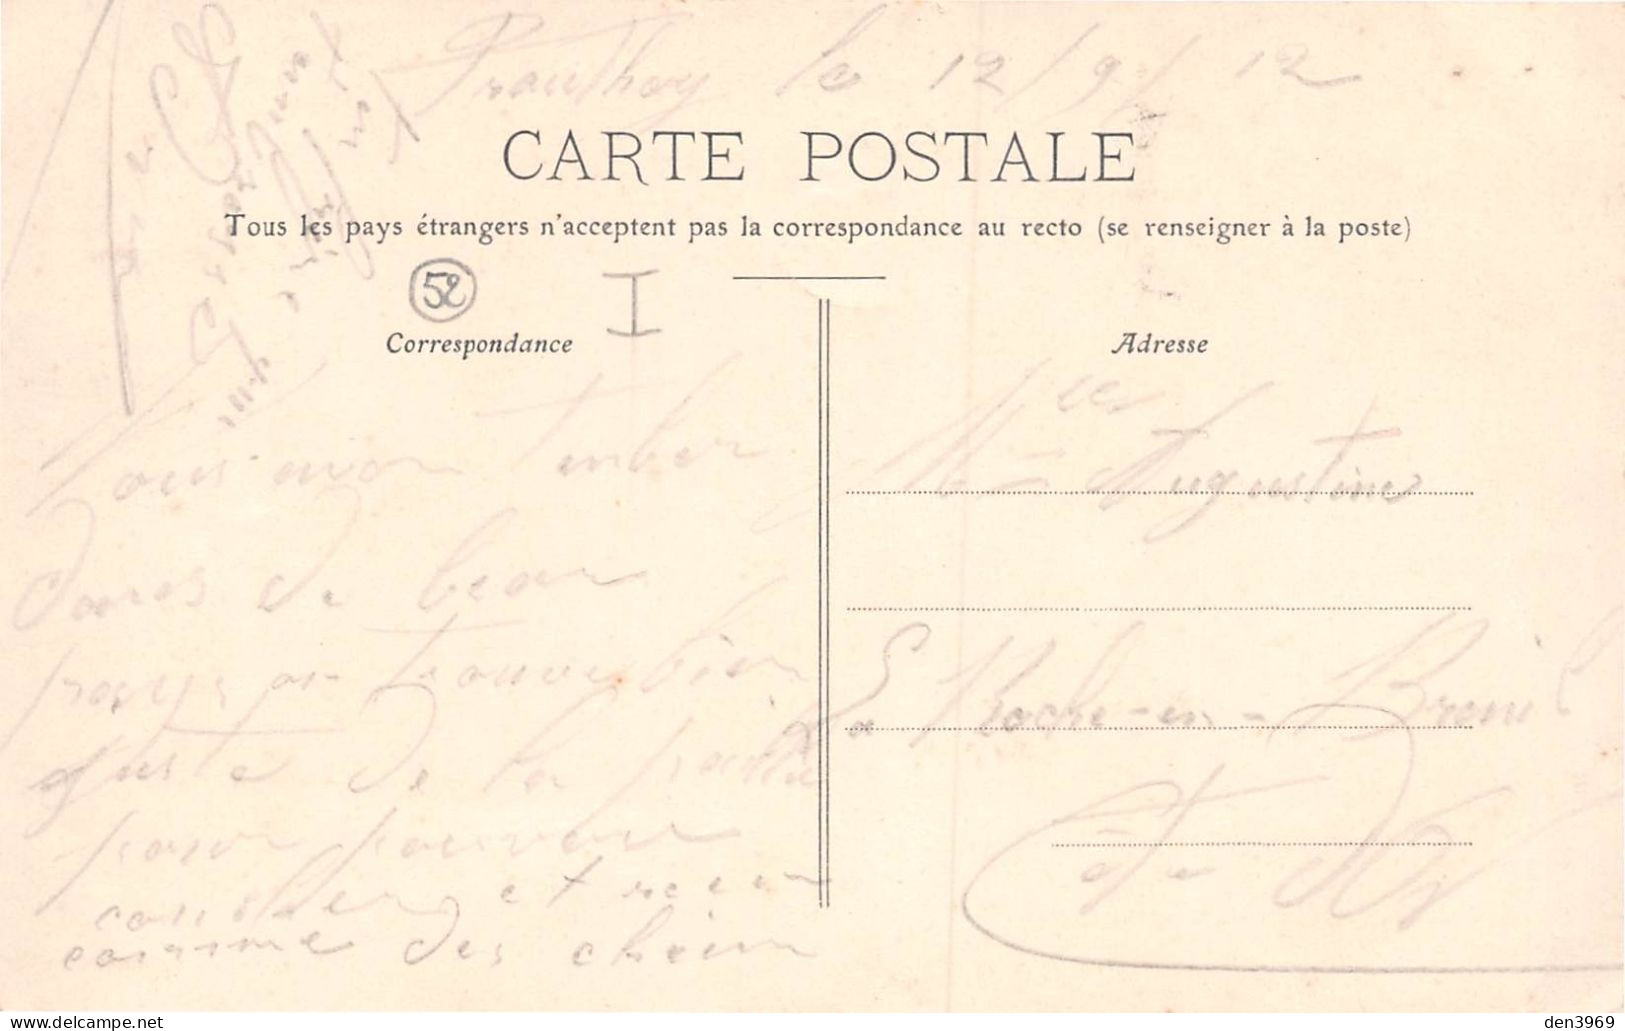 Prauthoy le 12/9/12
CARTE POSTALE
Tous les pays étrangers n'acceptent pas la correspondance au recto (se renseigner à la poste)
52 I
Correspondance
Adresse
Nous avon tomber
dans de beau
pays on trouve bien
juste de la paille
pour pouvoir
coucher et
comme des chein
Mlle Augustine
La Roche-en-Brenil
Côte d'Or
den3969